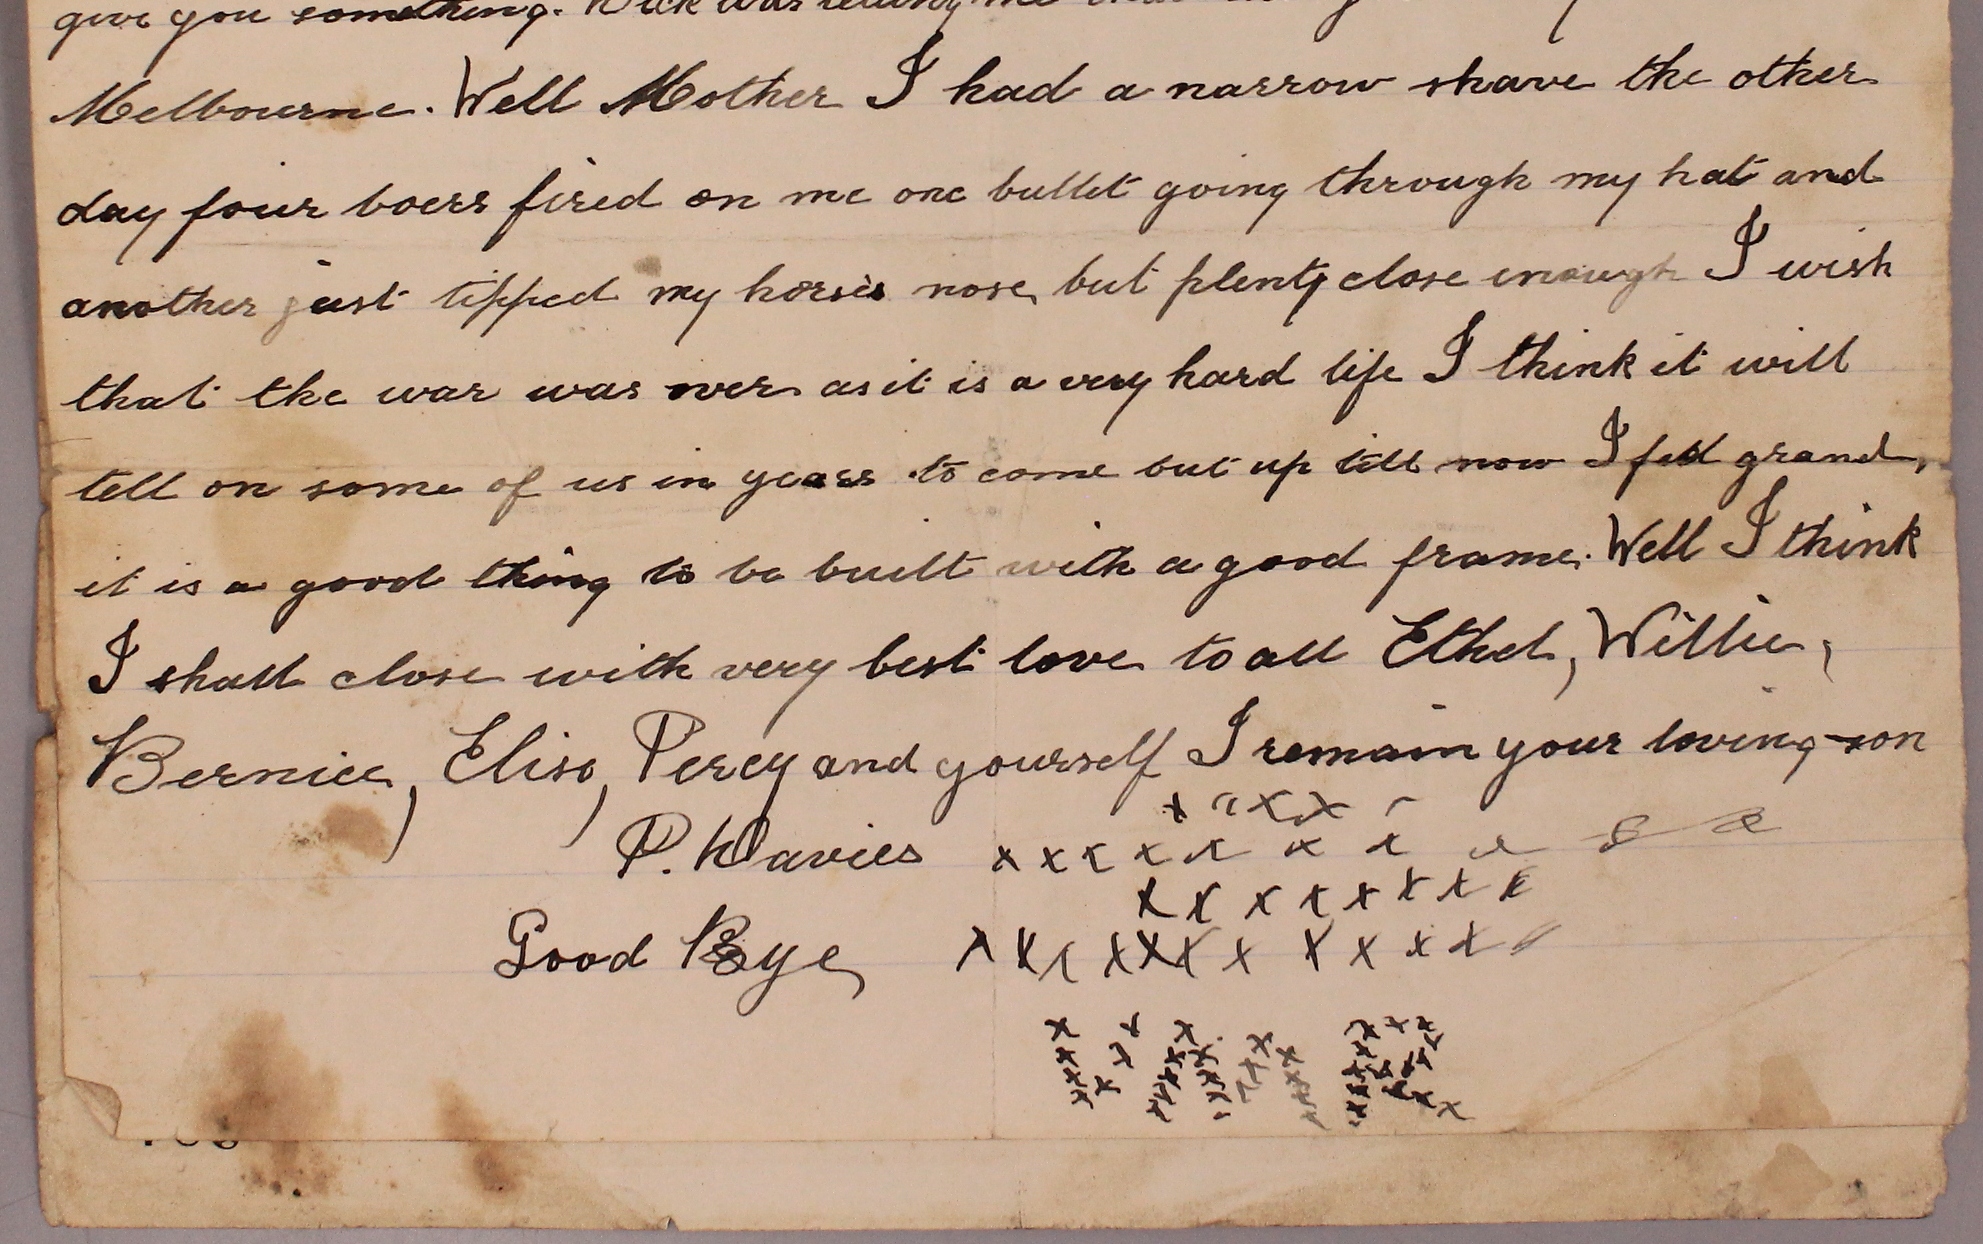 give you something. Dick was telling me that
Melbourne. Well Mother I had a narrow shave the other
day four boers fired on me one bullet going through my hat and
another just tipped my horses nose, but plenty close enough I wish
that the war was over as it is a very hard life I think it will
tell on some of us in years to come but up till now I feel grand,
it is a good thing to be built with a good frame. Well I think
I shall close with very best love to all Ethel, Willie,
Bernice, Eliso, Percy and yourself I remain your loving son
P. Davies x x x x x
x x x x x x x x
x x x x x x x x
Good Bye x x x x x x x x x x x